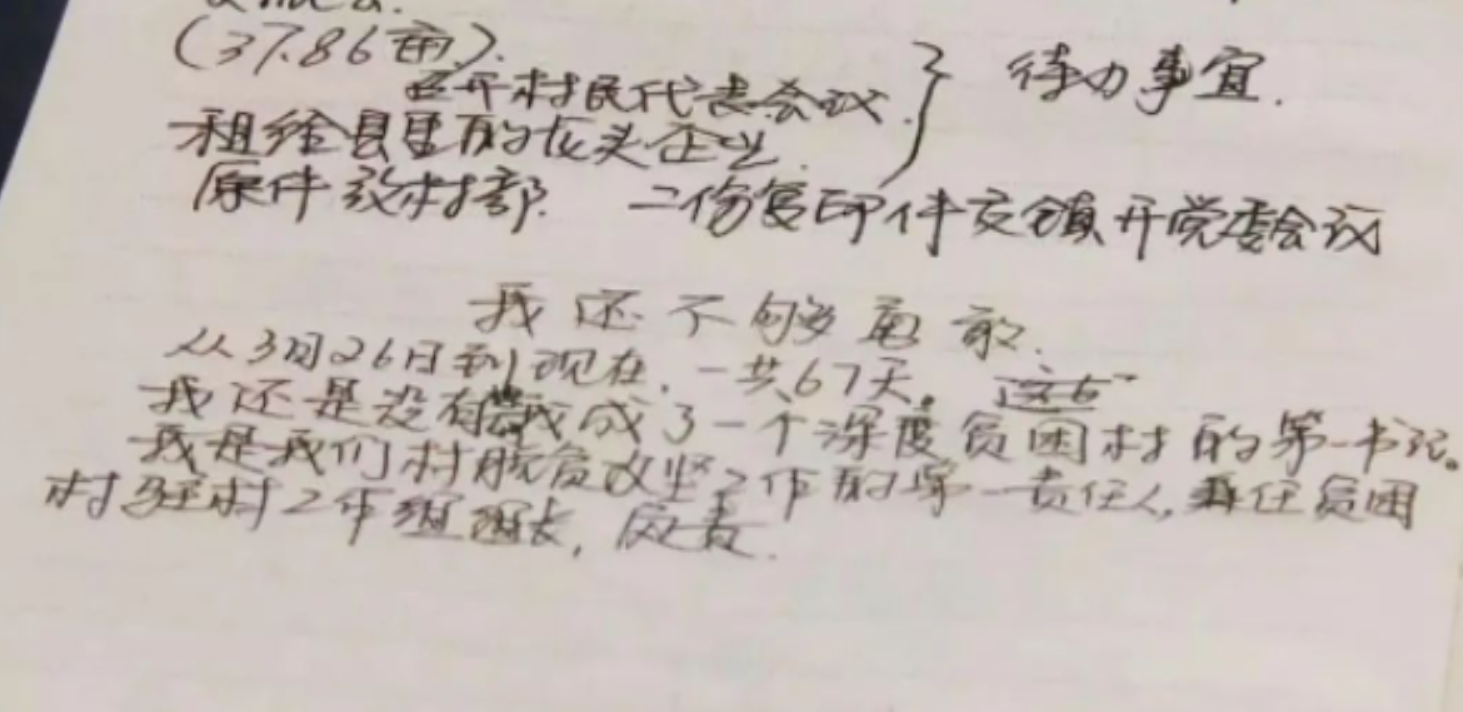 (37.86亩).
召开村民代表会议.
待办事宜.
租给县里的龙头企业.
原件放村部. 二份复印件交镇开党委会议
我还不够勇敢.
从3月26日到现在,一共67天。这
我还是没有 成了一个深度贫困村的第一书记。
我是我们村脱贫攻坚工作的第一责任人,兼任贫困
村驻村工作组组长,负责.